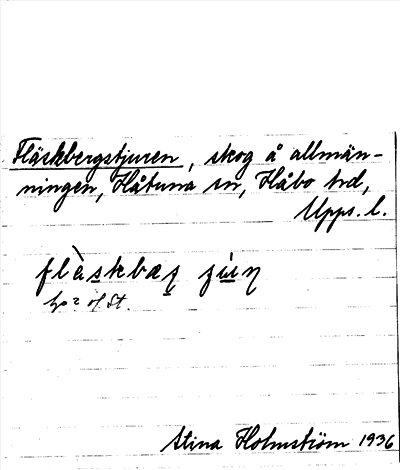 Fläskbergstjuren, skog å allmän-
ningen, Håtuna sn, Håbo hd,
Upps. l.
flàskbæʂ ʝuɳ
Stina Holmström 1936